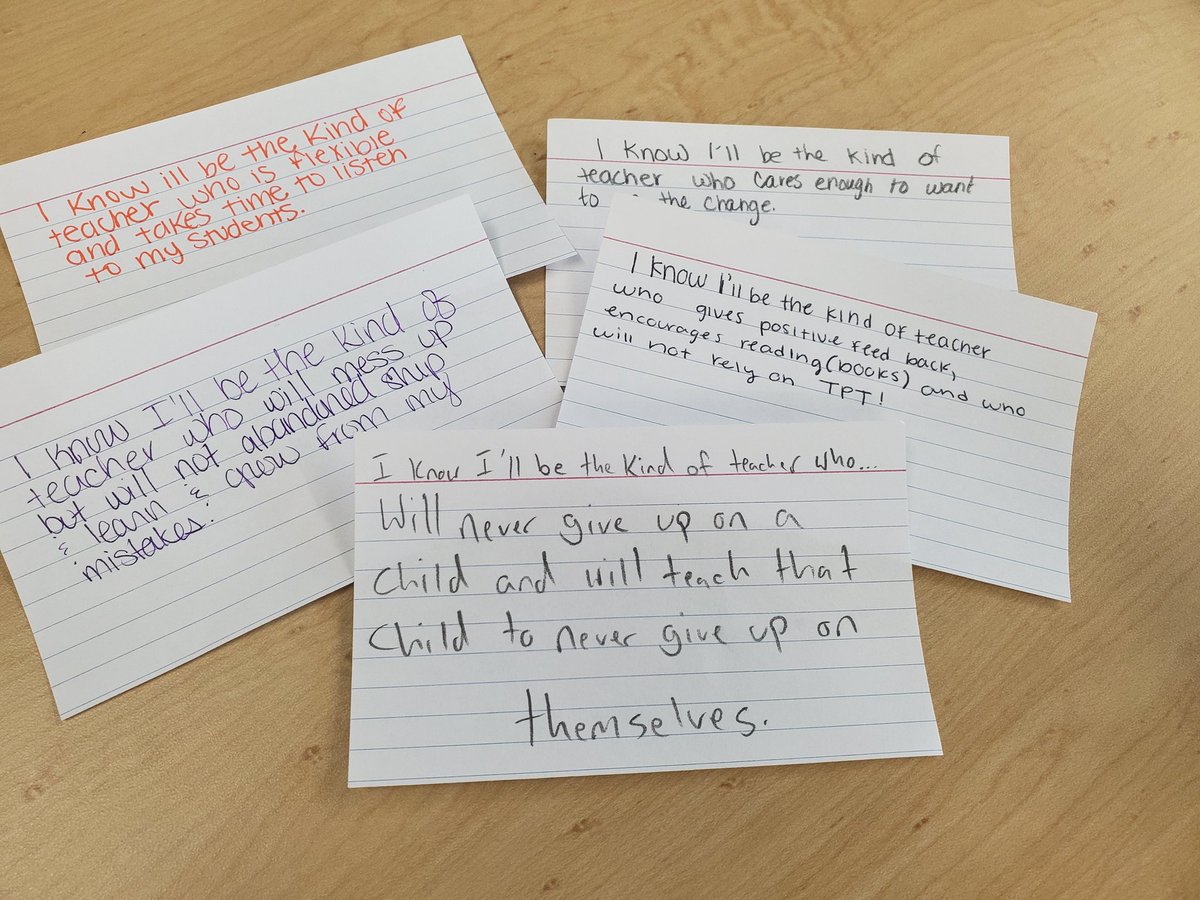 I Know ill be the Kind of
teacher who is flexible
and takes time to listen
to my students.
I Know I'll be the kind of
teacher who cares enough to want
to the change.
I know I'll be the kind of
teacher who will mess up
but will not abandoned ship
& learn & grow from my
mistakes.
I know I'll be the kind of teacher
who gives positive feed back,
encourages reading (books) and who
will not rely on TPT!
I know I'll be the kind of teacher who...
Will never give up on a
child and will teach that
child to never give up on
themselves.